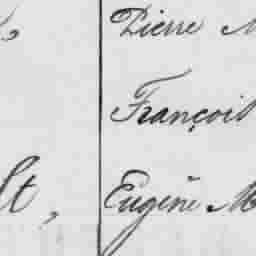 Pierre M
François
lt, Eugène M